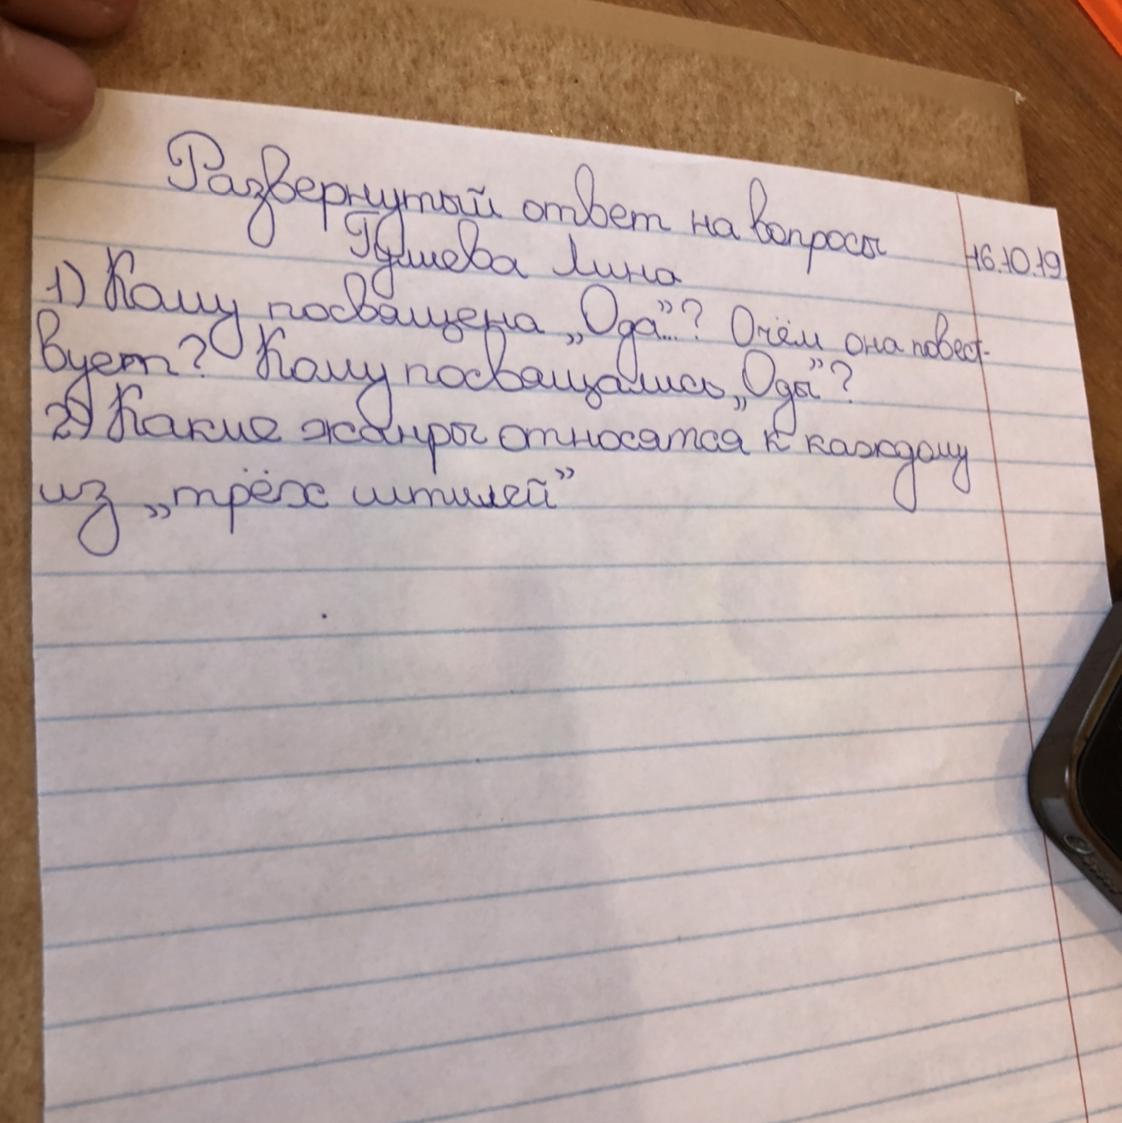 Развернутый ответ на вопросы
Гушева Лина 16.10.19
1) Кому посвящена „Ода”...? О чём она повест-
вует? Кому посвящались „Оды”?
2) Какие жанры относятся к каждому
из „трёх штилей”